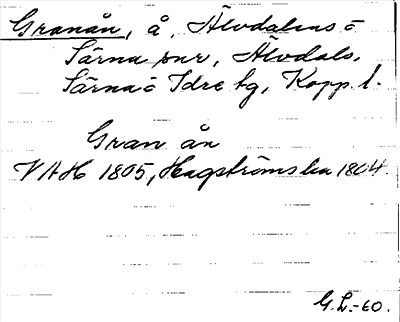 Granån, å, Älvdalens o
Särna snr, Älvdals,
Särna o Idre tg, Kopp. l.
Gran ån
VAH 1805, Hagströms ka 1804.
G.L.-60.